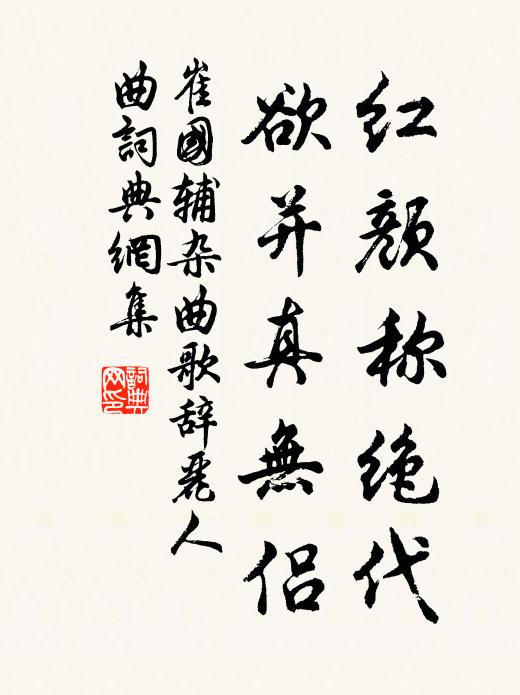 红颜称绝代
欲并真無侣
崔國辅杂曲歌辞麗人
曲詞典網集
詞典
网印